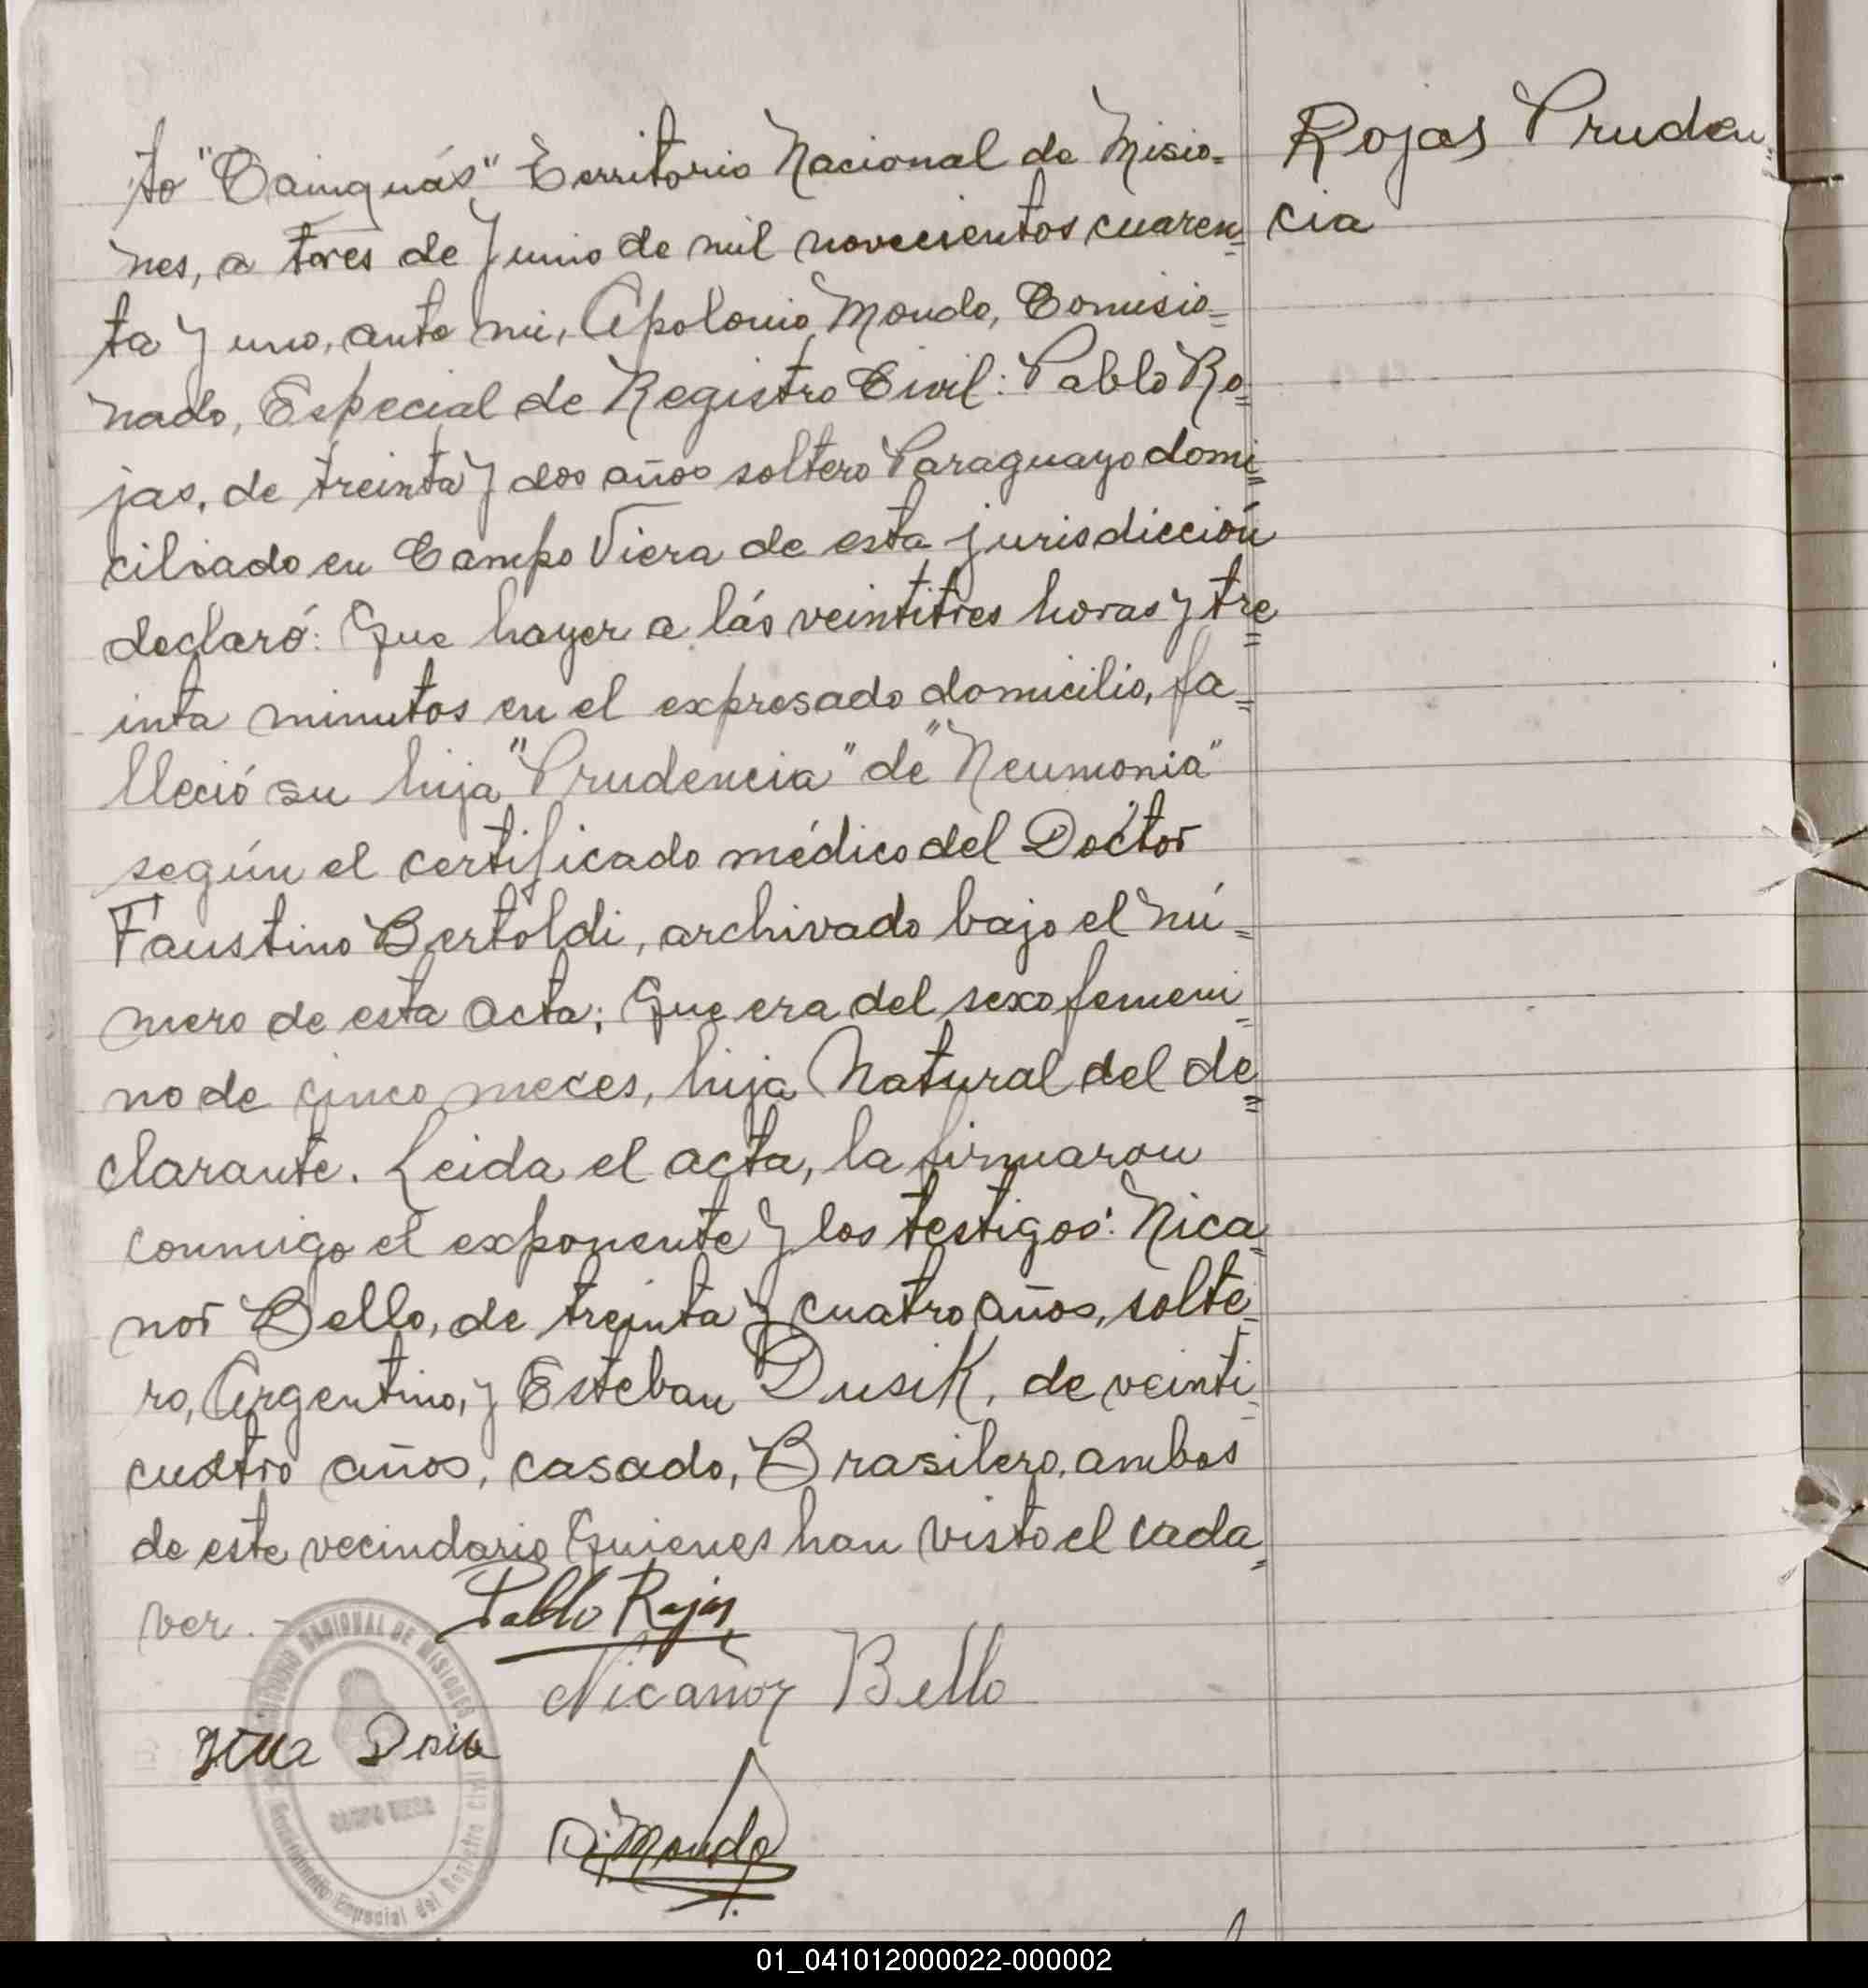 to "Cainguás", Territorio Nacional de Misio=
nes, a tres de Junio de mil novecientos cuaren=
ta y uno, ante mi, Apolonio Mondo, Comisio=
nado, Especial de Registro Civil: Pablo Ro=
jas, de treinta y dos años soltero Paraguayo domi=
ciliado en Campo Viera de esta jurisdicción
declaró: Que hayer a lás veintitres horas y tre=
inta minutos en el expresado domicilio, fa=
lleció su hija "Prudencia" de "Neumonia"
según el certificado médico del Doctor
Faustino Bertoldi, archivado bajo el nú=
mero de esta acta; Que era del sexo femeni=
no de cinco meces, hija Natural del de=
clarante. Leida el acta, la firmaron
conmigo el exponente y los testigos: Nica=
nor Bello, de treinta y cuatro años, solte=
ro, Argentino, y Esteban Dusik, de veinti=
cuatro años, casado, Brasilero, ambos
de este vecindario Quienes han visto el cada=
ver. -
Rojas Pruden=
cia
Pablo Rojas
Nicañor Bello
Mondo
NACIONAL DE MISIONES
CAMPO VIERA
Especial del Registro Civil
01_041012000022-000002